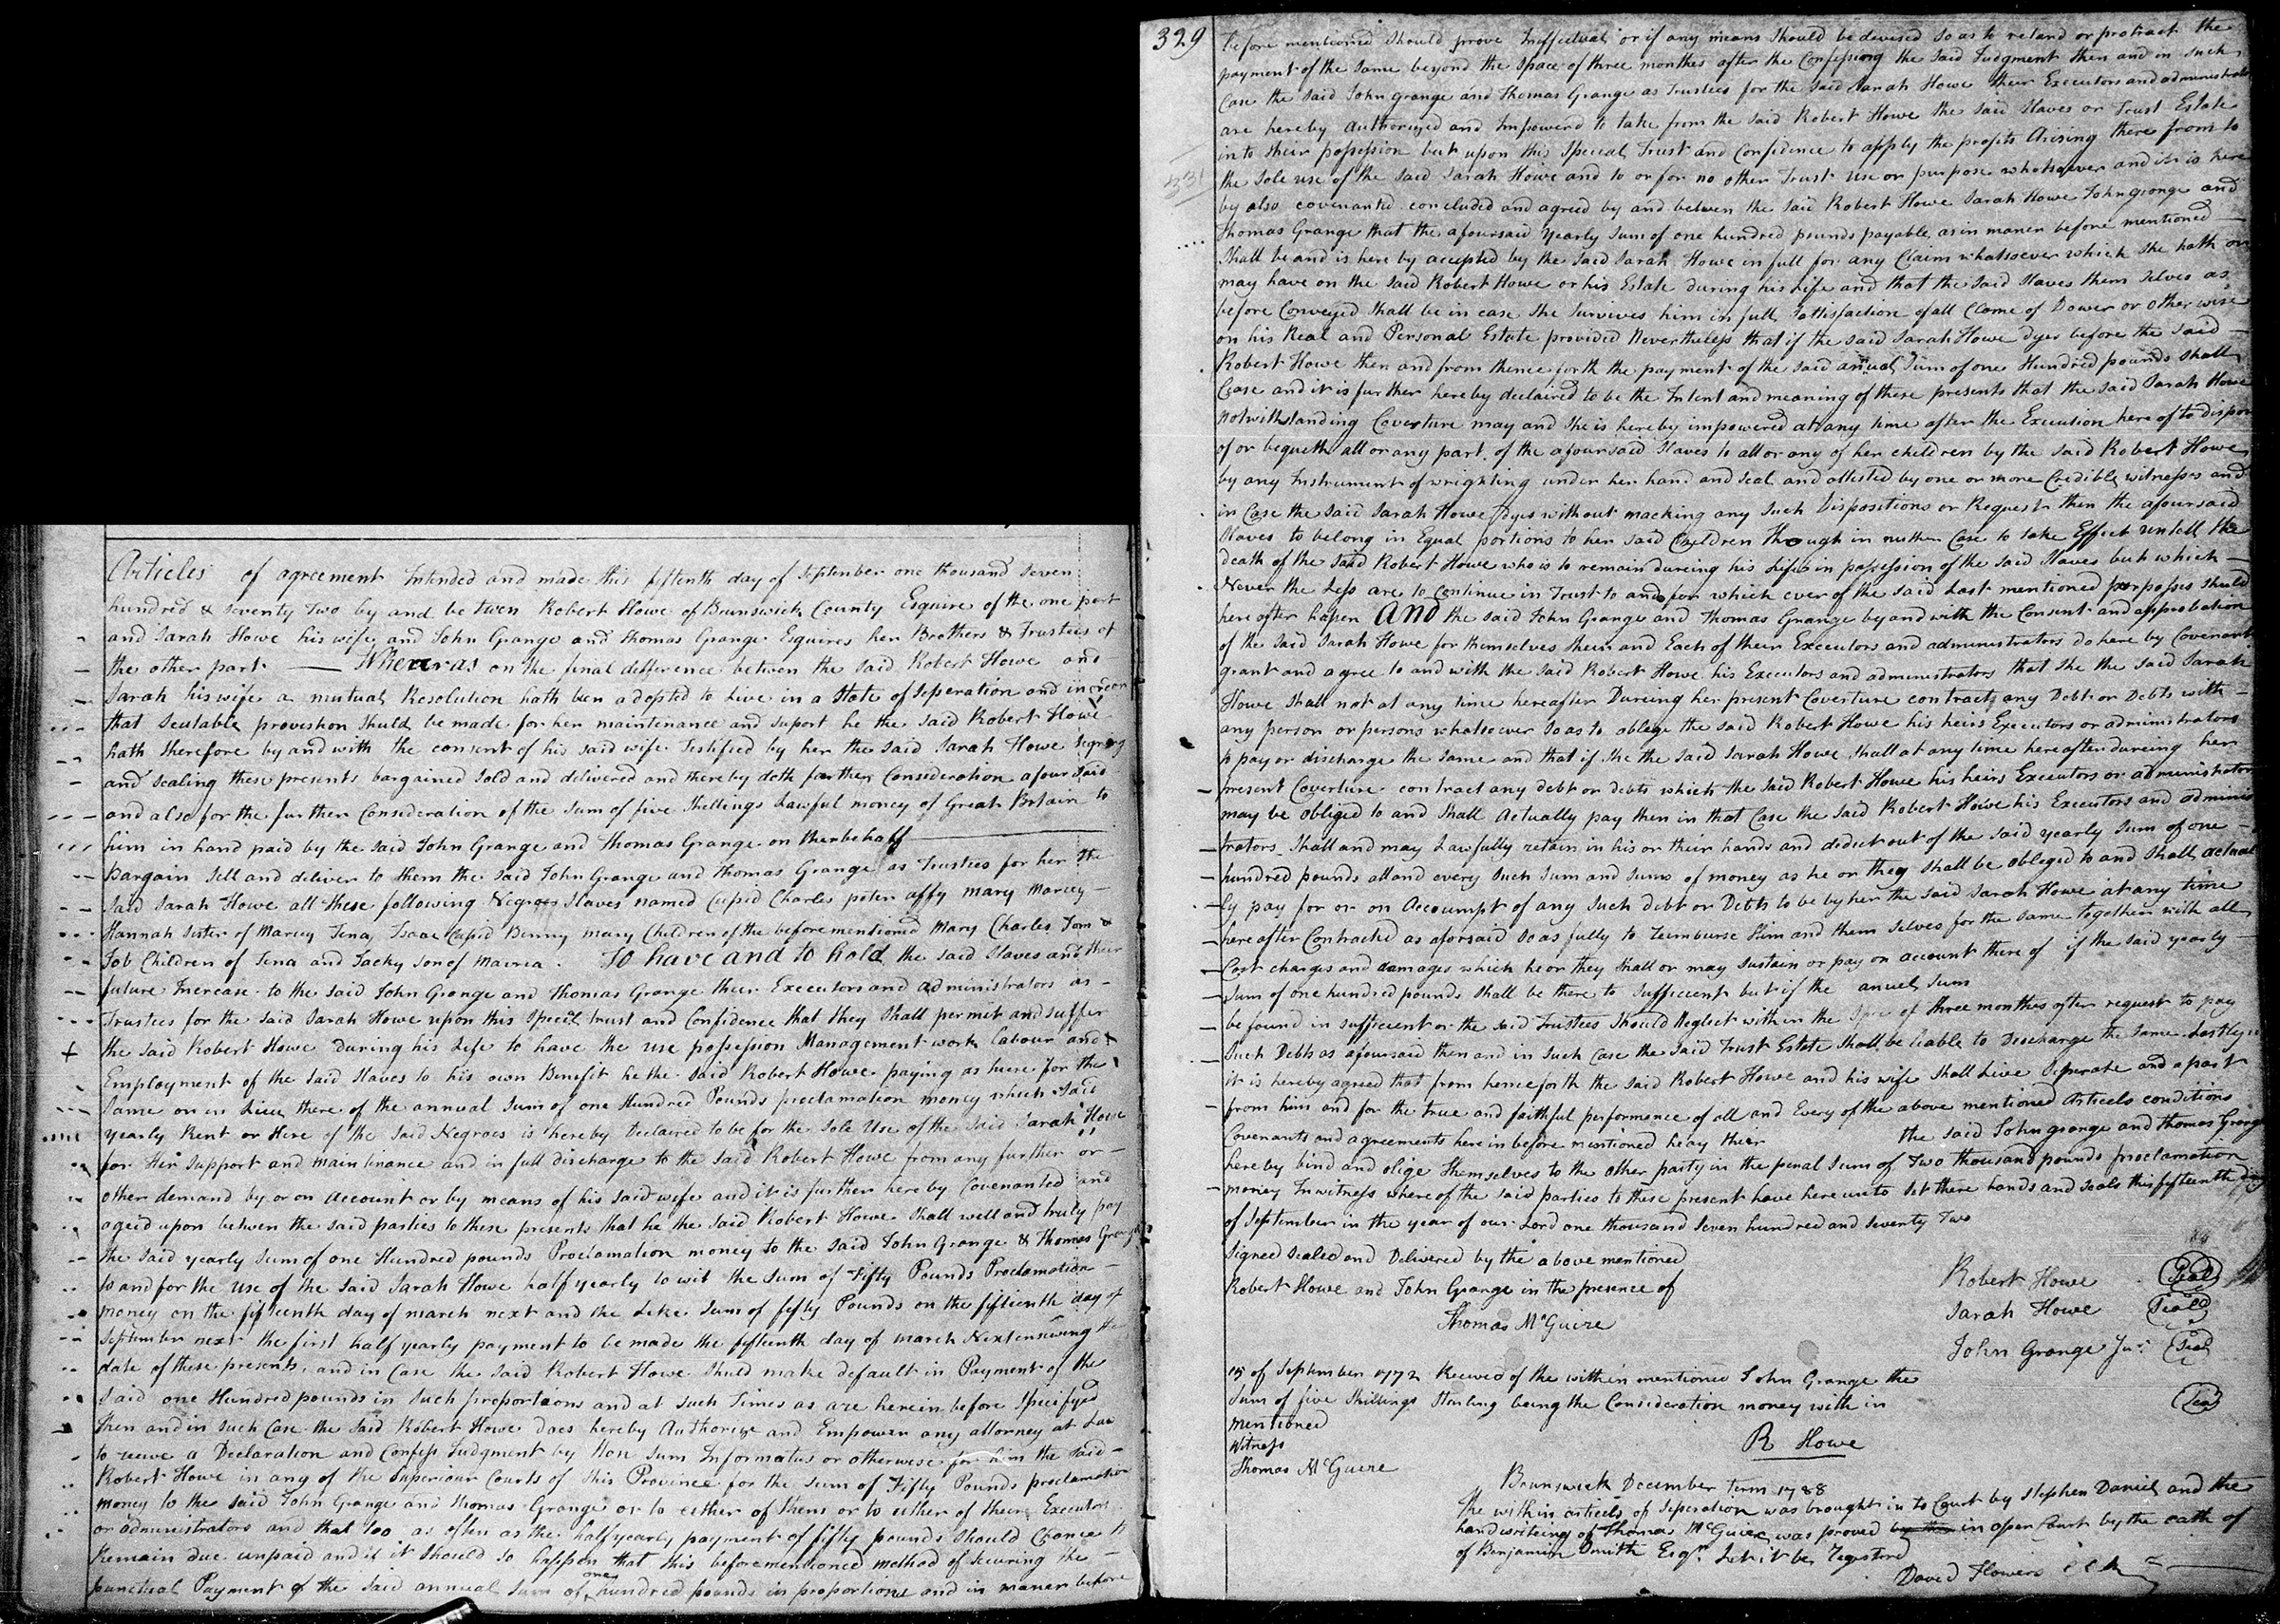 Articles of agreement Intended and made this fiftenth day of September one thousand seven
hundred & seventy Two by and be twen Robert Howe of Brunswick County Esquire of the one part
and Sarah Howe his wife and John Grange and Thomas Grange Esquires her Brothers & Trustees of
the other part — Whearas on the final defference between the said Robert Howe and
Sarah his wife a mutual Resolution hath ben adopted to Live in a State of Seperation and in
that Seutable proveshon shuld be made for her maintenance and suport he the said Robert Howe
hath therefore by and with the consent of his said wife Testified by her the said Sarah Howe
and sealing these presents bargained sold and delivered and thereby doth for the Consideration afoursaid
and also for the further Consideration of the sum of five Shellings Lawful money of Great Britain to
him in hand paid by the said John Grange and Thomas Grange on ther behalf —
Bargain Sell and deliver to them the said John Grange and Thomas Grange as Trusties for her the
said Sarah Howe all these following Negroes Slaves named Cupid Charles peter affy mary Marcey —
Hannah Sister of Marcey Jena, Isaac Cupid Binny mary Children of the before mentioned Mary Charles Tom &
Job Children of Jena and Jacky son of Mairea. To have and to hold the said Slaves and their
future Increase to the said John Grange and Thomas Grange their Executors and administrators as —
Trustees for the said Sarah Howe upon this Specil trust and Confidence that they Shall permit and suffer
the said Robert Howe During his Life to have the use possession Management work Labour and
Employment of the said Slaves to his own Benefit he the said Robert Howe paying as here for the
same or in Lieu there of the annual Sum of one Hundred Pounds proclamation money which said
yearly Rent or Hire of the said Negroes is hereby Declaired to be for the Sole Use of the said Sarah Howe
for Her Support and maintinance and in full discharge to the said Robert Howe from any further or —
other demand by or on account or by means of his said wife and it is further here by Covenanted and
agreed upon betwen the said parties to these presents that he the said Robert Howe Shall well and truly pay
the said yearly Sum of one Hundred pounds Proclamation money to the said John Grange & Thomas Grange
to and for the Use of the said Sarah Howe half yearly to wit the sum of Fifty Pounds Proclamation —
money on the fifteenth day of march next and the Like sum of fifty Pounds on the fifteenth day of
September next the first half yearly payment to be made the fifteenth day of march Next ensuing the
date of these presents, and in Case the said Robert Howe Shuld make default in Payment of the
said one Hundred pounds in Such proportions and at such Times as are herein before Specifyed
then and in such Case the said Robert Howe does hereby Authorize and Empower any attorney at Law
to a Declaration and Confess Judgment by Non Sum Informatus or otherwese for him the said —
Robert Howe in any of the Superiour Courts of this Province for the sum of Fifty Pounds proclamation
money to the said John Grange and Thomas Grange or to either of them or to either of their Executors
or administrators and that too as often as the half yearly payment of fifty pounds Should Chance to
Remain due unpaid and if it Should so happen that this beforementioned method of Securing the —
punctual Payment of the said annual Sum of one hundred pounds in proportions and in maner before
329
before mentioned Should prove Inffectual or if any means Should be devised so as to retard or protract the
payment of the same beyond the Space of three monthes after the Confessing the said Judgment then and in such
Case the said John Grange and Thomas Grange as Trustees for the said Sarah Howe their Executors and administrators
are hereby authorized and Impowerd to take from the said Robert Howe the said Slaves or Trust Estate
in to their possession but upon this Special Trust and Confidence to apply the profits Arising there from to
the Sole use of the said Sarah Howe and to or for no other Trust use or purpose whatsoever and it is here
331
by also covenanted concluded and agreed by and betwen the said Robert Howe Sarah Howe John grange and
Thomas Grange that the afoursaid yearly Sum of one hundred pounds payable as in maner before mentioned —
Shall be and is here by accepted by the said Sarah Howe in full for any Claim whatsoever which she hath or
may have on the said Robert Howe or his Estate during his Life and that the said Slaves them selves as
before Conveyed Shall be in case she Survives him in full Sattisfaction of all Clame of Dower or otherwise
on his Real and Personal Estate provided Nevertheless that if the said Sarah Howe dyes before the said —
Robert Howe then and from thence forth the payment of the said anual Sum of one Hundred pounds Shall
Cease and it is further hereby declaired to be the Intent and meaning of these presents that the said Sarah Howe
Notwithstanding Coverture may and she is hereby impowered at any time after the Execution here of to dispose
of or bequeth all or any part of the afoursaid Slaves to all or any of her children by the said Robert Howe
by any Instrument of wrighting under her hand and seal and attested by one or more Credible witnesses and
in Case the said Sarah Howe dyes without macking any such Dispositions or Request then the afoursaid
Slaves to belong in Equal portions to her said Children Though in nuther Case to take Effect untell the
death of the said Robert Howe who is to remain dureing his Life in possession of the said Slaves but which —
Never the Less are to Continue in Trust to and for which ever of the said Last mentioned porposses should
here after hapen And the said John Grange and Thomas Grange by and with the Consent and approbation
of the said Sarah Howe for themselves their and Each of their Executors and administrators do here by Covenant
grant and agree to and with the said Robert Howe his Executors and administrators that she the said Sarah
Howe Shall not at any time hereafter Dureing her present Coverture contract any Debt or Debts with —
any person or persons whatsoever so as to oblege the said Robert Howe his heirs Executors or administrators
to pay or discharge the same and that if she the said Sarah Howe Shall at any time here after dureing her
present Coverture contract any debt or debts which the said Robert Howe his heirs Executors or administrators
may be obliged to and Shall Actually pay then in that Case the said Robert Howe his Executors and adminis
trators Shall and may Lawfully retain in his or their hands and deduct out of the said yearly Sum of one —
hundred pounds all and every such Sum and Sums of money as he or they shall be obleged to and Shall actual
ly pay for or on Accoumpt of any such debt or Debts to be by her the said Sarah Howe at any time
here after Contracted as aforsaid so as fully to Reimburse Him and them selves for the same together with all
Cost charges and damages which he or they Shall or may Sustain or pay on account there of if the said yearly —
Sum of one hundred pounds Shall be there to Sufficient but if the anuel Sum
be found in sufficient or the said Trustees Should Neglect with in the of three monthes after request to pay
Such Debts as afoursaid then and in such Case the said Trust Estate Shall be liable to Discharge the same Lastly
it is hereby agreed that from henceforth the said Robert Howe and his wife Shall Live Seperate and apart
from him and for the true and faithful performence of all and Every of the above mentioned Articels conditions
Covenants and agreements here in before mentioned the said John grange and Thomas Grange
hereby bind and olige themselves to the other party in the penal Sum of Two thousand pounds proclamation
money In witness where of the said parties to these present have here unto set there hands and seals this fifteenth day
of September in the year of our Lord one thousand Seven hundred and seventy Two
Signed Sealed and Delivered by the above mentioned
Robert Howe and John Grange in the presence of
Thomas McGuire
Robert Howe (Seal)
Sarah Howe (Seald)
John Grange Jur (Seal)
(Seal)
15 of September 1772 Received of the within mentioned John Grange the
Sum of five Shillings Starling being the Consideration money with in
mentioned
Witness
Thomas McGuere
R Howe
Brunswick December Term 1788
The within articels of Seperation was brought in to Court by Stephen Daniel and the
handwriting of Thomas McGuire was proved by this in open Court by the oath of
of Benjamin Smith Esqr Let it be Registerd
David Flowers